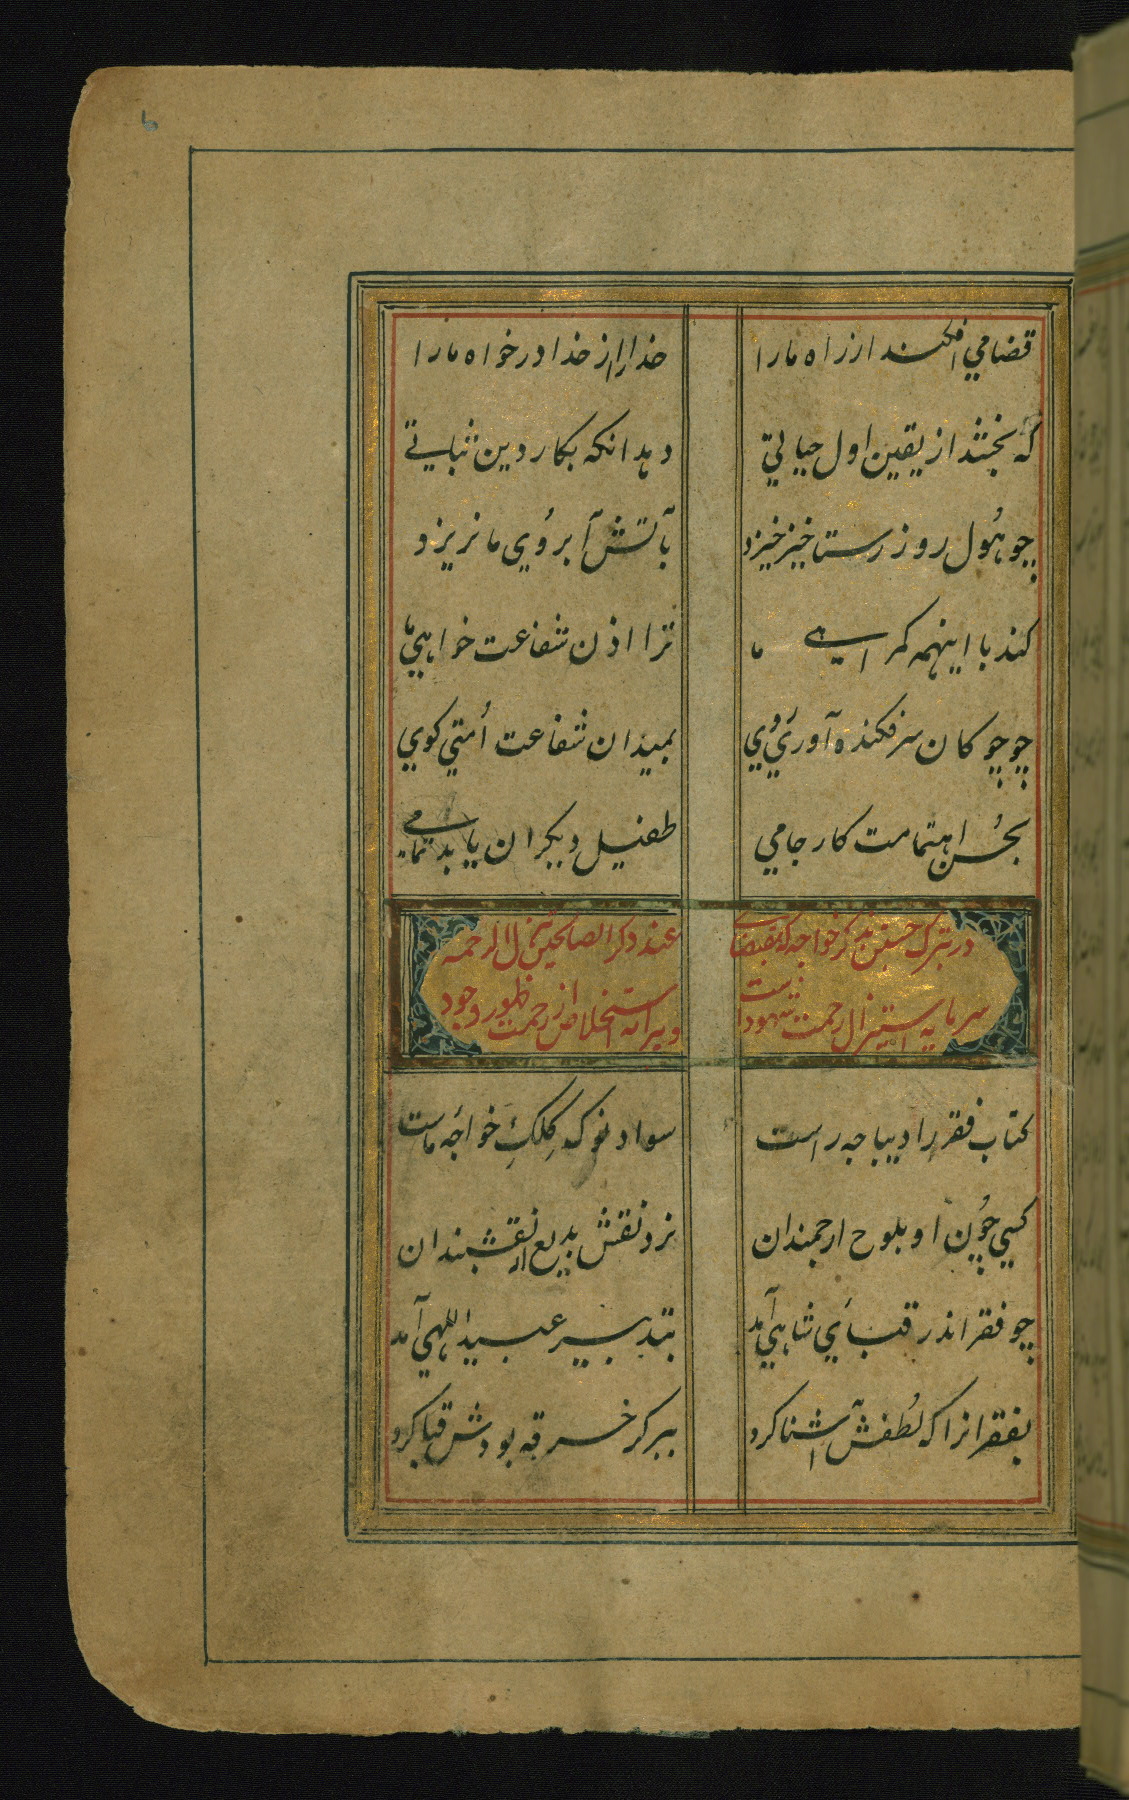 قضا می افکند از راه مارا
خدا را از خدا درخواه مارا
که بخشد از یقین اول حیاتی
دهد آنکه بکار دین ثباتی
چو هول روز رستاخیز خیزد
بآتش آبروی ما نریزد
کند با اینهمه گمراهی ما
ترا اذن شفاعت خواهی ما
چو چوکان سرفکنده آوری روی
بمیدان شفاعت امتی کوی
بحسن اهتمامت کار جامی
طفیل دیگران یابد تمامی
در تبرک جستن بذکر خواجه که بمقتضای
عند ذکر الصالحین تنزل الرحمه
سرمایه استنزال رحمت شهود است
و پیرایه استخلاص از زحمت ظهور وجود
کتاب فقر را دیباجه راست
سواد نوک کلک خواجه ماست
کسی چون او بلوح ارجمندان
نزد نقش بدیع نقشبندان
چو فقر اندر قبای شاهی آمد
بتدبیر عبیداللهی آمد
بفقر آنرا که لطفش آشنا کرد
ببر گر خرقه بودش قبا کرد